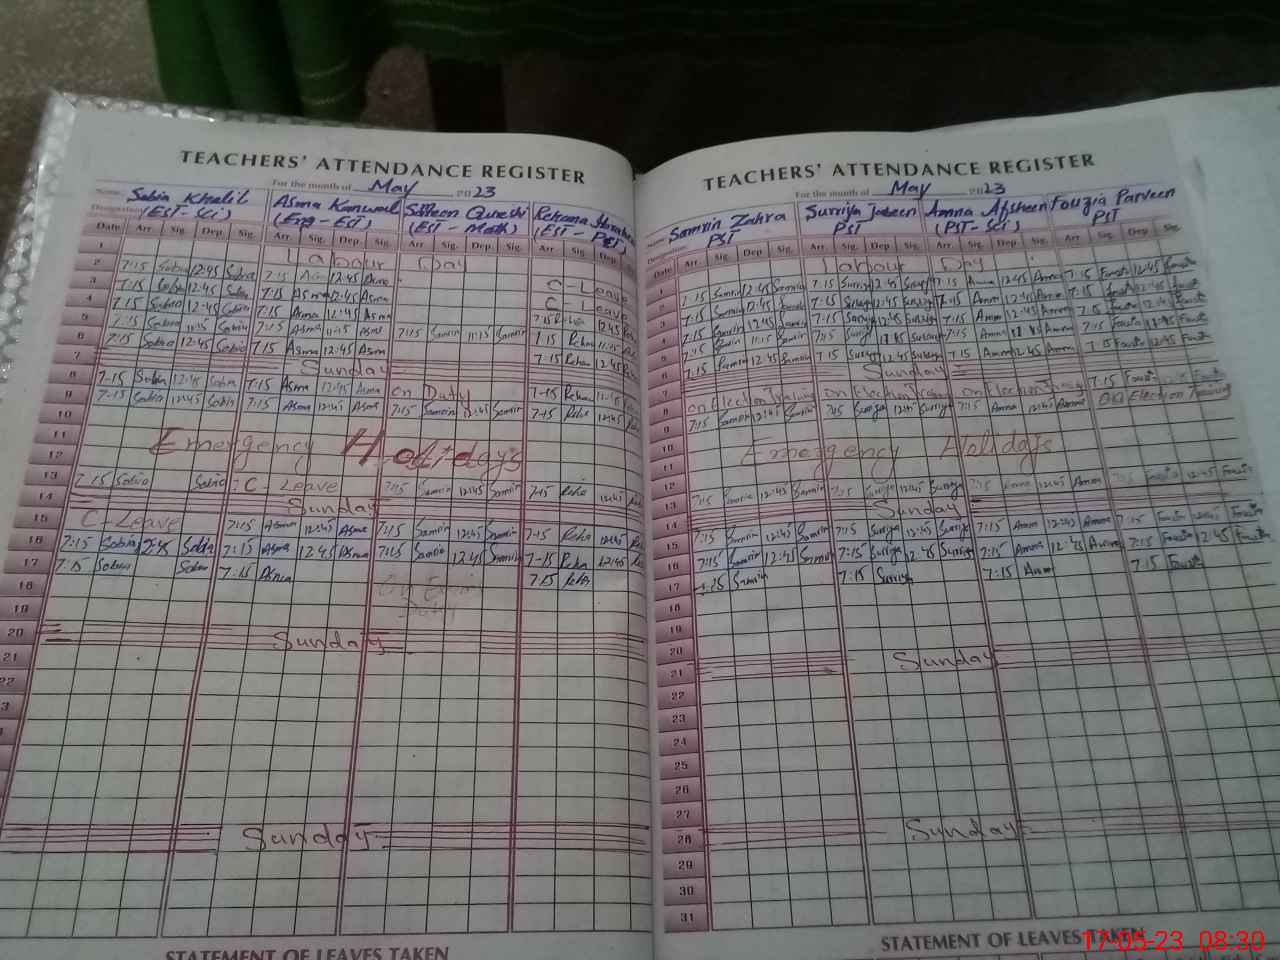 TEACHERS' ATTENDANCE REGISTER
For the month of May 2023
Sobia Khalil Asma Kanwal
(EST-Sci) (Eng-EST) (EST-Math)
Date Arr. Sig. Dep. Sig. Arr. Sig. Dep. Sig. Arr. Sig. Dep. Sig. Arr. Sig. Dep.
1 Labour Day
2 7:15 Sobia 12:45 Sobia 7:15 Asma 12:45 Asma C-Leave
3 7:15 Sobia 12:45 Sobia 7:15 Asma 12:45 Asma C-Leave
4 7:15 Sobia 12:45 Sobia 7:15 Asma 12:45 Asma 7:15 12:45
5 7:15 Sobia 11:15 Sobia 7:15 Asma 11:15 Asma 7:15 Samrin 11:15 Samrin 7:15 Reha 11:15
6 7:15 Sobia 12:45 Sobia 7:15 Asma 12:45 Asma 7:15 Reha 12:45
7 Sunday
8 7:15 Sobia 12:45 Sobia 7:15 Asma 12:45 Asma on Duty 7:15 Reha
9 7:15 Sobia 12:45 Sobia 7:15 Asma 12:45 Asma 7:15 Samrin 12:45 Samrin 7:15 Reha 12:45
10
11 Emergency Holidays
12
13 7:15 Sobia Sobia C-Leave 7:15 Samrin 12:45 Samrin 7:15 Reha 12:45
14 Sunday
15 C-Leave 7:15 Asma 12:45 Asma 7:15 Samrin 12:45 Samrin 7:15 Reha 12:45
16 7:15 Sobia Sobia 7:15 Asma 12:45 Asma 7:15 Samrin 12:45 Samrin 7:15 Reha 12:45
17 7:15 Sobia Sobia 7:15 Asma 7:15 Reha
18 Duty
19
20
21 Sunday
22
Sunday
STATEMENT OF LEAVES TAKEN
TEACHERS' ATTENDANCE REGISTER
For the month of May 2023
Samrin Zahra Surriya Jabeen Amna Afsheen Fouzia Parveen
PST PST (PST-Sci) PST
Date Arr. Sig. Dep. Sig. Arr. Sig. Dep. Sig. Arr. Sig. Dep. Sig. Arr. Sig. Dep. Sig.
1 Labour Day
2 7:15 Samrin 12:45 Samrin 7:15 Surriya 12:45 Surriya 7:15 Amna 12:45 Amna 7:15 12:45
3 7:15 Samrin 12:45 Samrin 7:15 Surriya 12:45 Surriya 7:15 Amna 12:45 Amna 7:15 12:45
4 7:15 Samrin 12:45 Samrin 7:15 Surriya 12:45 Surriya 7:15 Amna 12:45 Amna 7:15 12:45
5 7:15 Samrin 11:15 Samrin 7:15 Surriya Surriya 7:15 Amna Amna 7:15
6 7:15 Samrin 12:45 Samrin 7:15 Surriya 12:45 Surriya 7:15 Amna 12:45 Amna 7:15 12:45
7 Sunday
8 on Election Training on Election Training on Election Training 7:15
9 7:15 Samrin 12:45 Samrin 7:15 Surriya 12:45 Surriya 7:15 Amna 12:45 Amna on Election Training
10
11 Emergency Holidays
12
13 7:15 Samrin 12:45 Samrin 7:15 Surriya 12:45 Surriya 7:15 Amna 12:45 Amna 7:15 12:45
14 Sunday
15 7:15 Samrin 12:45 Samrin 7:15 Surriya 12:45 Surriya 7:15 Amna 12:45 Amna 7:15 12:45
16 7:15 Samrin 12:45 Samrin 7:15 Surriya 12:45 Surriya 7:15 Amna 12:45 Amna 7:15 12:45
17 7:15 Samrin 7:15 Surriya 7:15 Amna 7:15
18
19
20
21 Sunday
22
23
24
25
26
27
28 Sunday
29
30
31
STATEMENT OF LEAVES TAKEN
17-05-23 08:30